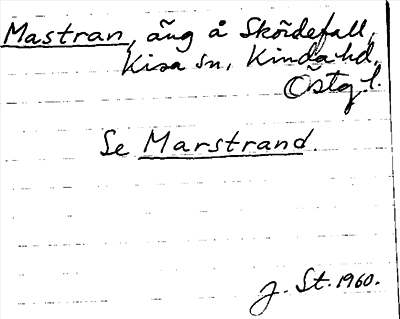 Mastran, äng å Skördefall,
Kisa sn, Kinda hd.
Östg. l.
Se Marstrand.
J. St. 1960.